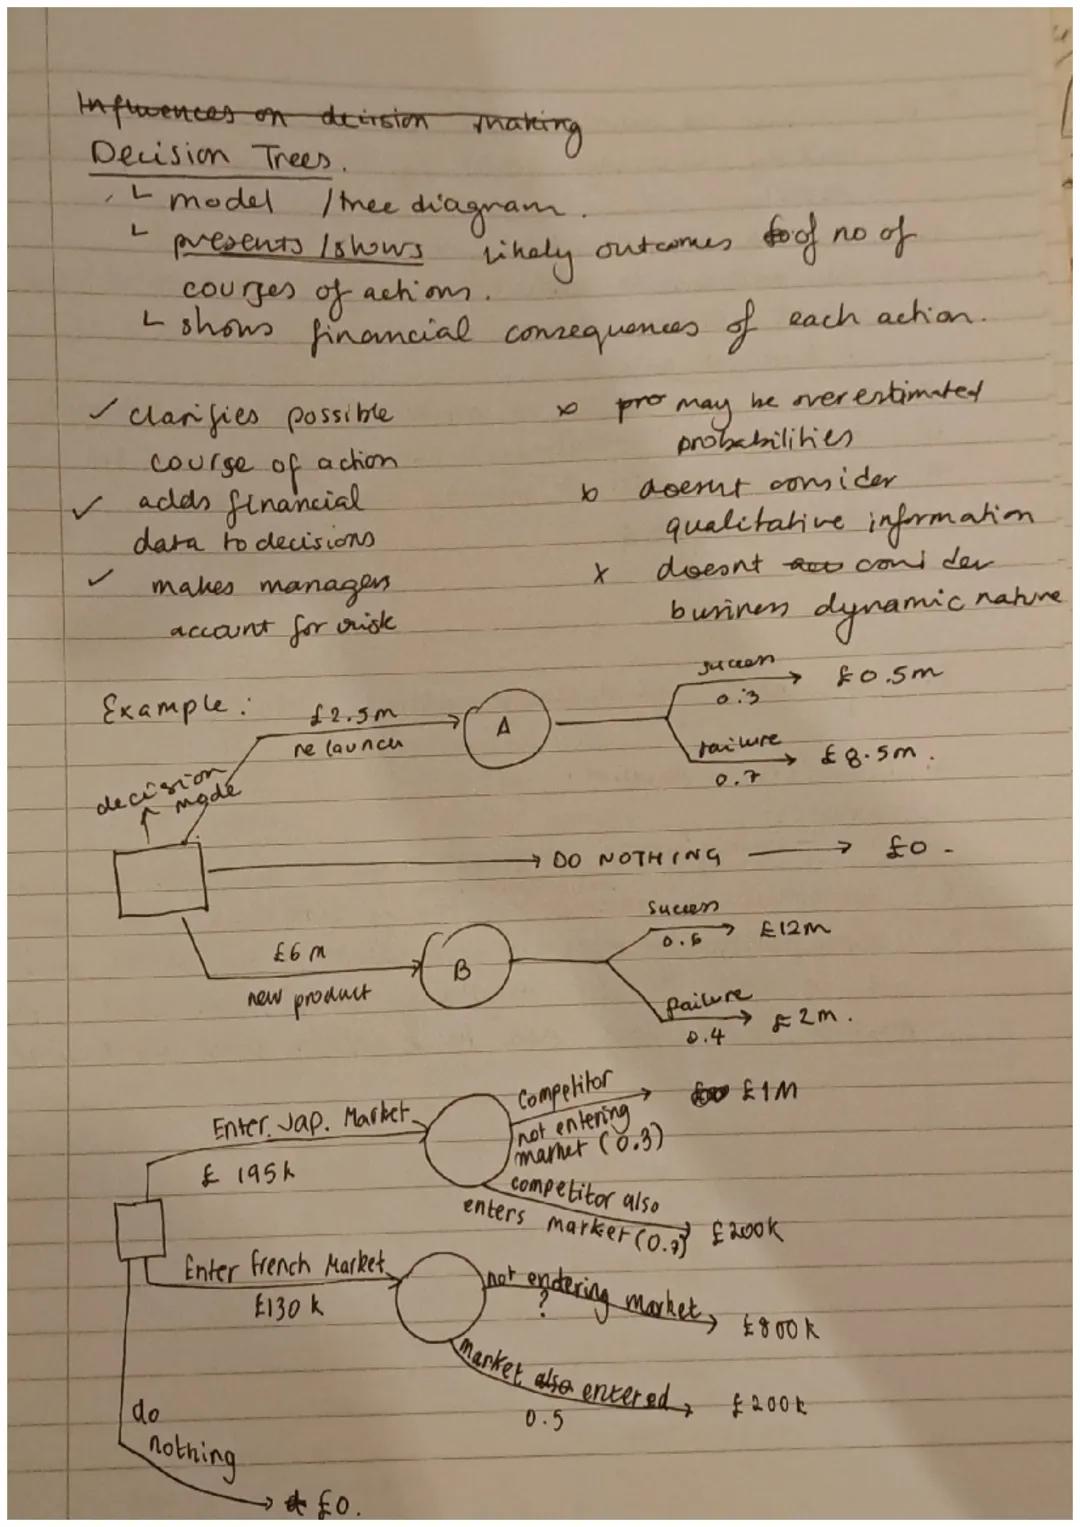 Influences on decision making
Decision Trees.
model / tree diagram.
presents / shows likely outcomes of no of
courses of actions.
shows financial consequences of each action.
✓ clarifies possible
course of action
✓ adds financial
data to decisions
✓ makes managers
account for risk
x may be overestimated
probabilities
x doesnt consider
qualitative information
x doesnt consider
business dynamic nature
Example:
decision
made
£2.5m
relaunch
A
success
0.3
£0.5m
failure
0.7
£8.5m.
DO NOTHING
£0
£6m
new product
B
success
0.6
£12m
failure
0.4
£2m.
Enter Jap. Market
£195k
Competitor
not entering
market (0.3)
£1M
competitor also
enters market (0.7)
£200k
Enter French Market
£130k
not endering market
?
£800k
market also entered
0.5
£200k
do
nothing
£0.